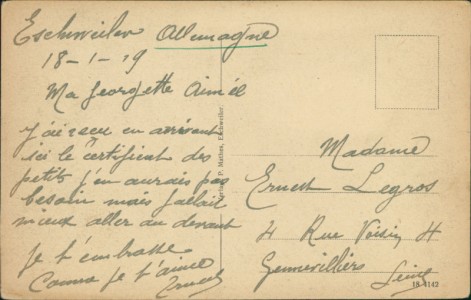 Eschweiler Allemagne
18-1-19
Ma Georgette Aimée
J'ai recu en arrivant
ici le certificat des
petits j'en aurais pas
besoin mais fallait
mieux aller au devant
Je t'embrasse
Comme je t'aime
Ernest
P. Mathes, Eschweiler.
Madame
Ernest Legros
4 Rue Voisin 4
Gennevilliers
Seine
18 4142